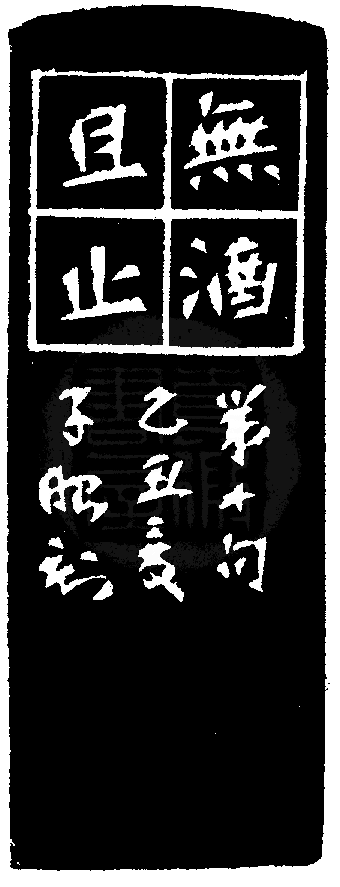 無酒
且止
第十句
乙丑夏
子昭刻